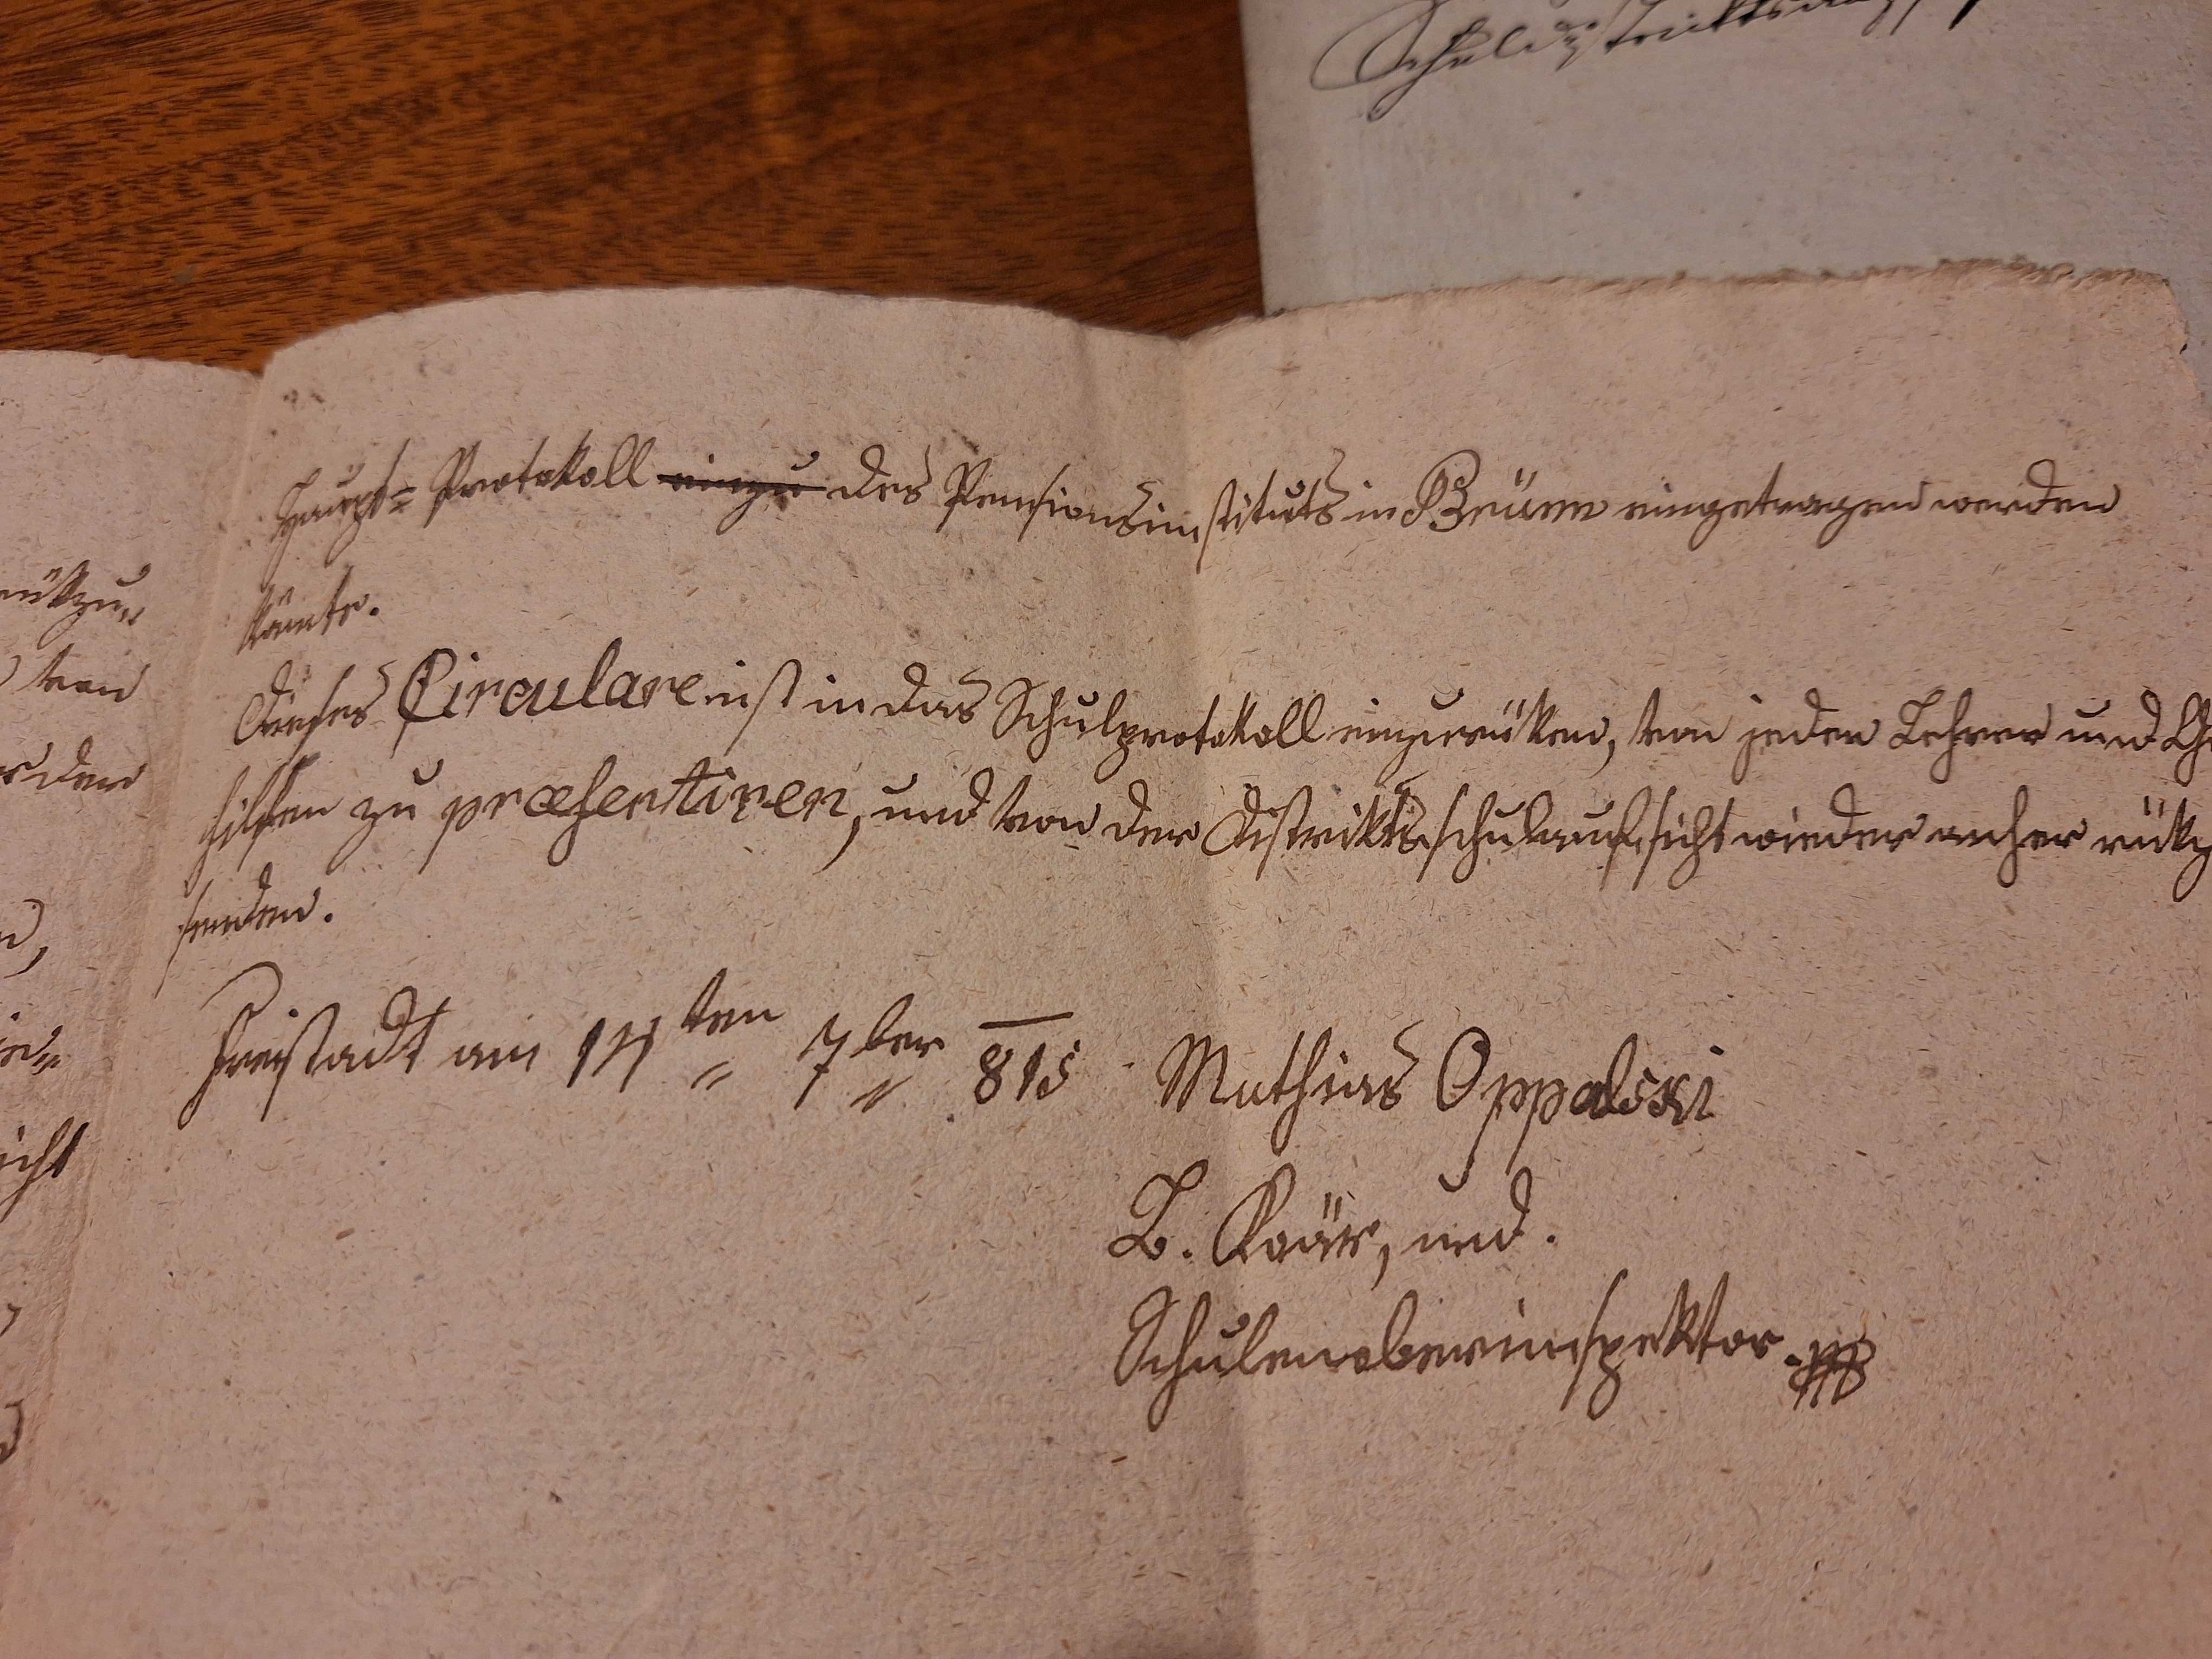 Schuldistrikts
Haupt= Protokoll einzu des Pensionsinstituts in Brünn eingetragen werden
könnte.
Dieses Circulare ist in das Schulprotokoll einzurüken, von jeden Lehrer und Ge
hilfen zu præsentiren, und von der Distriktsschulaufsicht wieder anher rükz
senden.
Freistadt am 14ten 7ber 815 Mathias Oppolski
B. Koär, und.
Schulenoberinspektor
rükzu=
von
der
icht